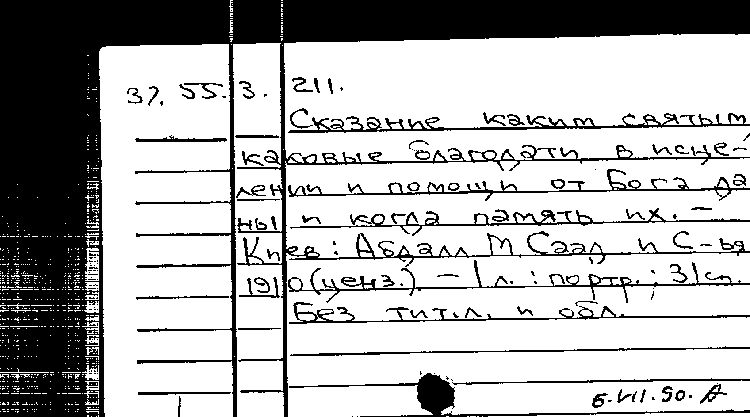 37. 55. 3. 211.
Сказание каким святым
каковые благодати в исце-
лении и помощи от Бога да
ны и когда память их. –
Киев: Абдалл М. Саад и С-ья
1910 (ценз.). – 1 л.: портр.; 31 сп.
Без тит.л. и обл.
6.VII.90. А